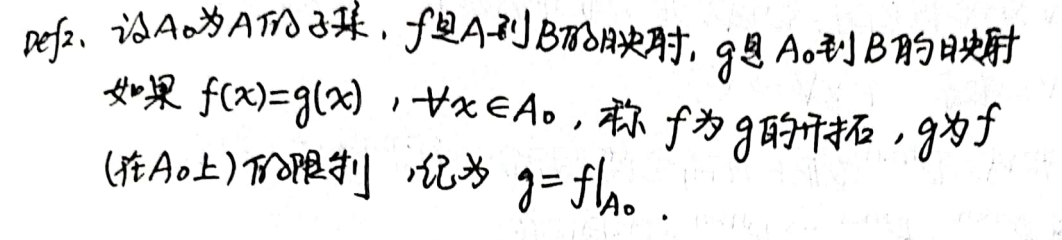 Def2. 设A₀为A的子集，f是A到B的映射，g是A₀到B的映射
如果 f(x)=g(x)，∀x∈A₀，称 f为g的开拓，g为f
(在A₀上)的限制，纪为 g=f|A₀.